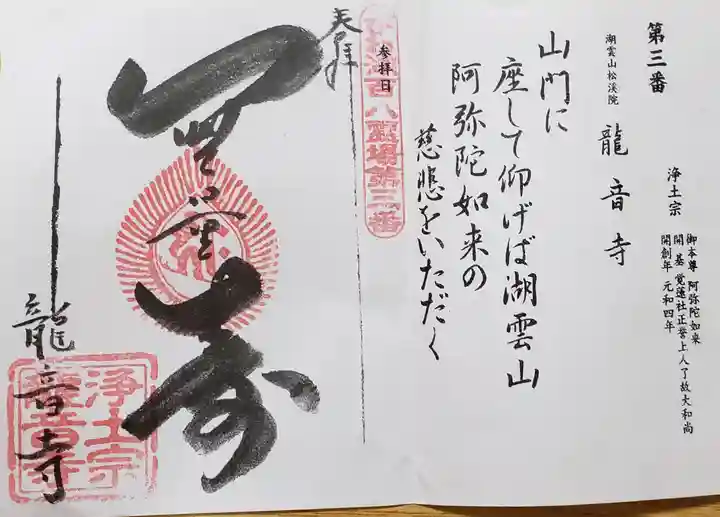 第三番
湖雲山松渓院
龍音寺
浄土宗
御本尊 阿弥陀如来
開基 覚蓮社正誉上人了故大和尚
開創年 元和四年
山門に
座して仰げば湖雲山
阿弥陀如来の
慈悲をいただく
参拝日
百八霊場第三番
奉拝
無量寿
龍音寺
浄土宗
龍音寺